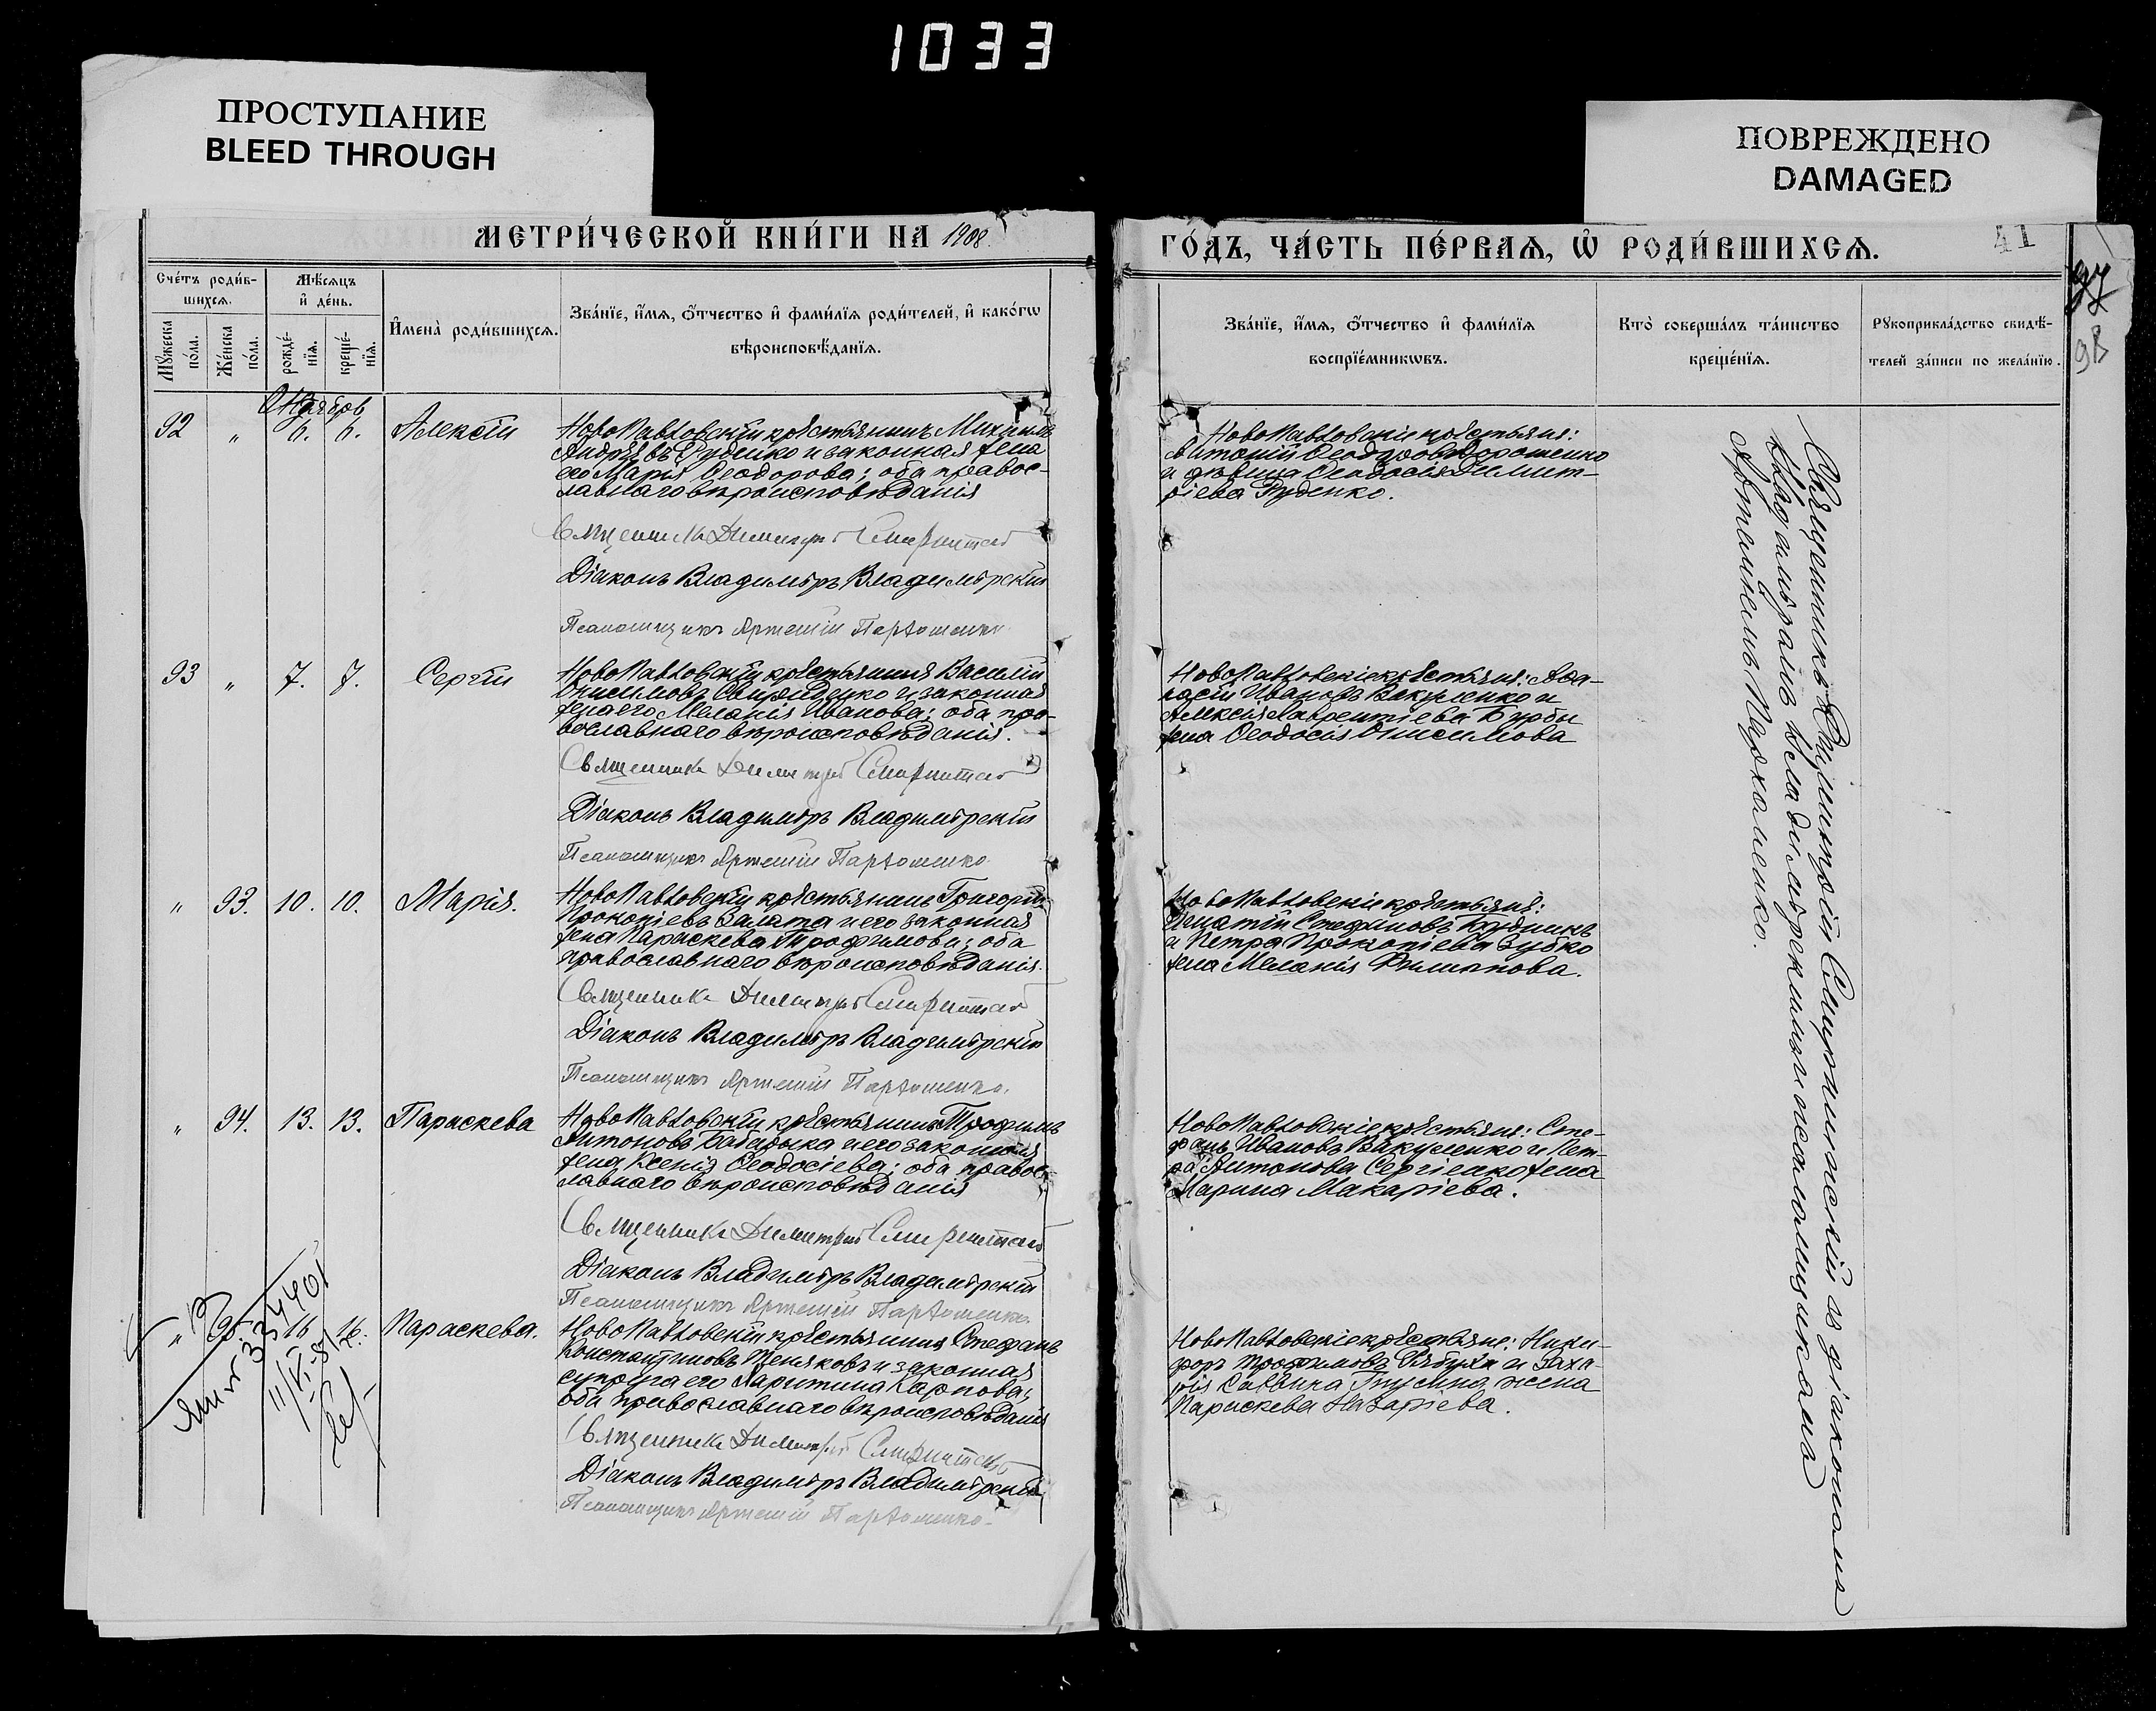 1033
ПРОСТУПАНИЕ
BLEED THROUGH
ПОВРЕЖДЕНО
DAMAGED
МЕТРИ́ЧЕСКОЙ КНИ́ГИ НА 1908
ГО́ДЪ, ЧА́СТЬ ПЕ́РВАѦ, Ѿ РОДИ́ВШИХСѦ.
41
97
98
Сче́тъ роди́в-
шихсѧ.
Мꙋ́жеска по́ла.
Же́нска по́ла.
Мѣ́сѧцъ
и҆ де́нь.
рожде́-
нїѧ.
креще́-
нїѧ.
И҆мена̀ роди́вшихсѧ.
Зва́нїе, и҆́мѧ, ѻ҆́тчество и҆ фами́лїѧ роди́телей, и҆ како́гѡ
вѣроисповѣ́данїѧ.
Зва́нїе, и҆́мѧ, ѻ҆́тчество и҆ фами́лїѧ
воспрїе́мникѡвъ.
Кто̀ соверша́лъ та́инство
креще́нїѧ.
Рꙋкоприкла́дство свидѣ́-
телей за́писи по жела́нїю.
92 " 6. 6. Алексѣй
НовоПавловскій крестьянинъ Михаилъ
Андреевъ Руденко и законная жена
его Марія Ѳеодорова; оба правос-
лавнаго вѣроисповѣданія
Священникъ Димитрій Смирнитскій
Діаконъ Владиміръ Владимірскій
Псаломщикъ Артемій Пархоменко
НовоПавловскіе крестьяне:
Антоній Ѳеодоровъ Дорошенко
и дѣвица Ѳеодосія Димит-
ріева Руденко.
93 " 7. 7. Сергій
НовоПавловскій крестьянинъ Василій
Онисимовъ Свириденко и законная
жена его Меланія Иванова; оба пра-
вославнаго вѣроисповѣданія.
Священникъ Димитрій Смирнитскій
Діаконъ Владиміръ Владимірскій
Псаломщикъ Артемій Пархоменко
НовоПавловскіе крестьяне: Аѳа-
насій Ивановъ Вакуленко и
Алексія Лаврентіева Бурды
жена Ѳеодосія Онисимова
" 93. 10. 10. Марія.
НовоПавловскій крестьянинъ Григорій
Прокопіевъ Залата и его законная
жена Параскева Трофимова; оба
православнаго вѣроисповѣданія.
Священникъ Димитрій Смирнитскій
Діаконъ Владиміръ Владимірскій
Псаломщикъ Артемій Пархоменко.
НовоПавловскіе крестьяне:
Игнатій Стефановъ Будникъ
и Петра Прокопіева Зубко
жена Меланія Филиппова.
" 94. 13. 13. Параскева
НовоПавловскій крестьянинъ Трофимъ
Антоновъ Бабадыка и его законная
жена Ксенія Ѳеодосіева; оба правос-
лавнаго вѣроисповѣданія
Священникъ Димитрій Смирнитскій
Діаконъ Владиміръ Владимірскій
Псаломщикъ Артемій Пархоменко
НовоПавловскіе крестьяне: Сте-
фанъ Ивановъ Вакуленко и Пет-
ра Антонова Сергіенко жена
Марина Макаріева.
" 95. 16 16. Параскева.
НовоПавловскій крестьянинъ Стефанъ
Константиновъ Теняковъ и законная
супруга его Харитина Карпова;
оба православнаго вѣроисповѣданія
Священникъ Димитрій Смирнитскій
Діаконъ Владиміръ Владимірскій
Псаломщикъ Артемій Пархоменко
НовоПавловскіе крестьяне: Ники-
форъ Трофимовъ Рябуха и Заха-
рія Саввина жена
Параскева Назаріева.
Священникъ Димитрій Смирнитскій съ діакономъ
Владиміромъ Владимірскимъ и псаломщикомъ
Артеміемъ Пархоменко.